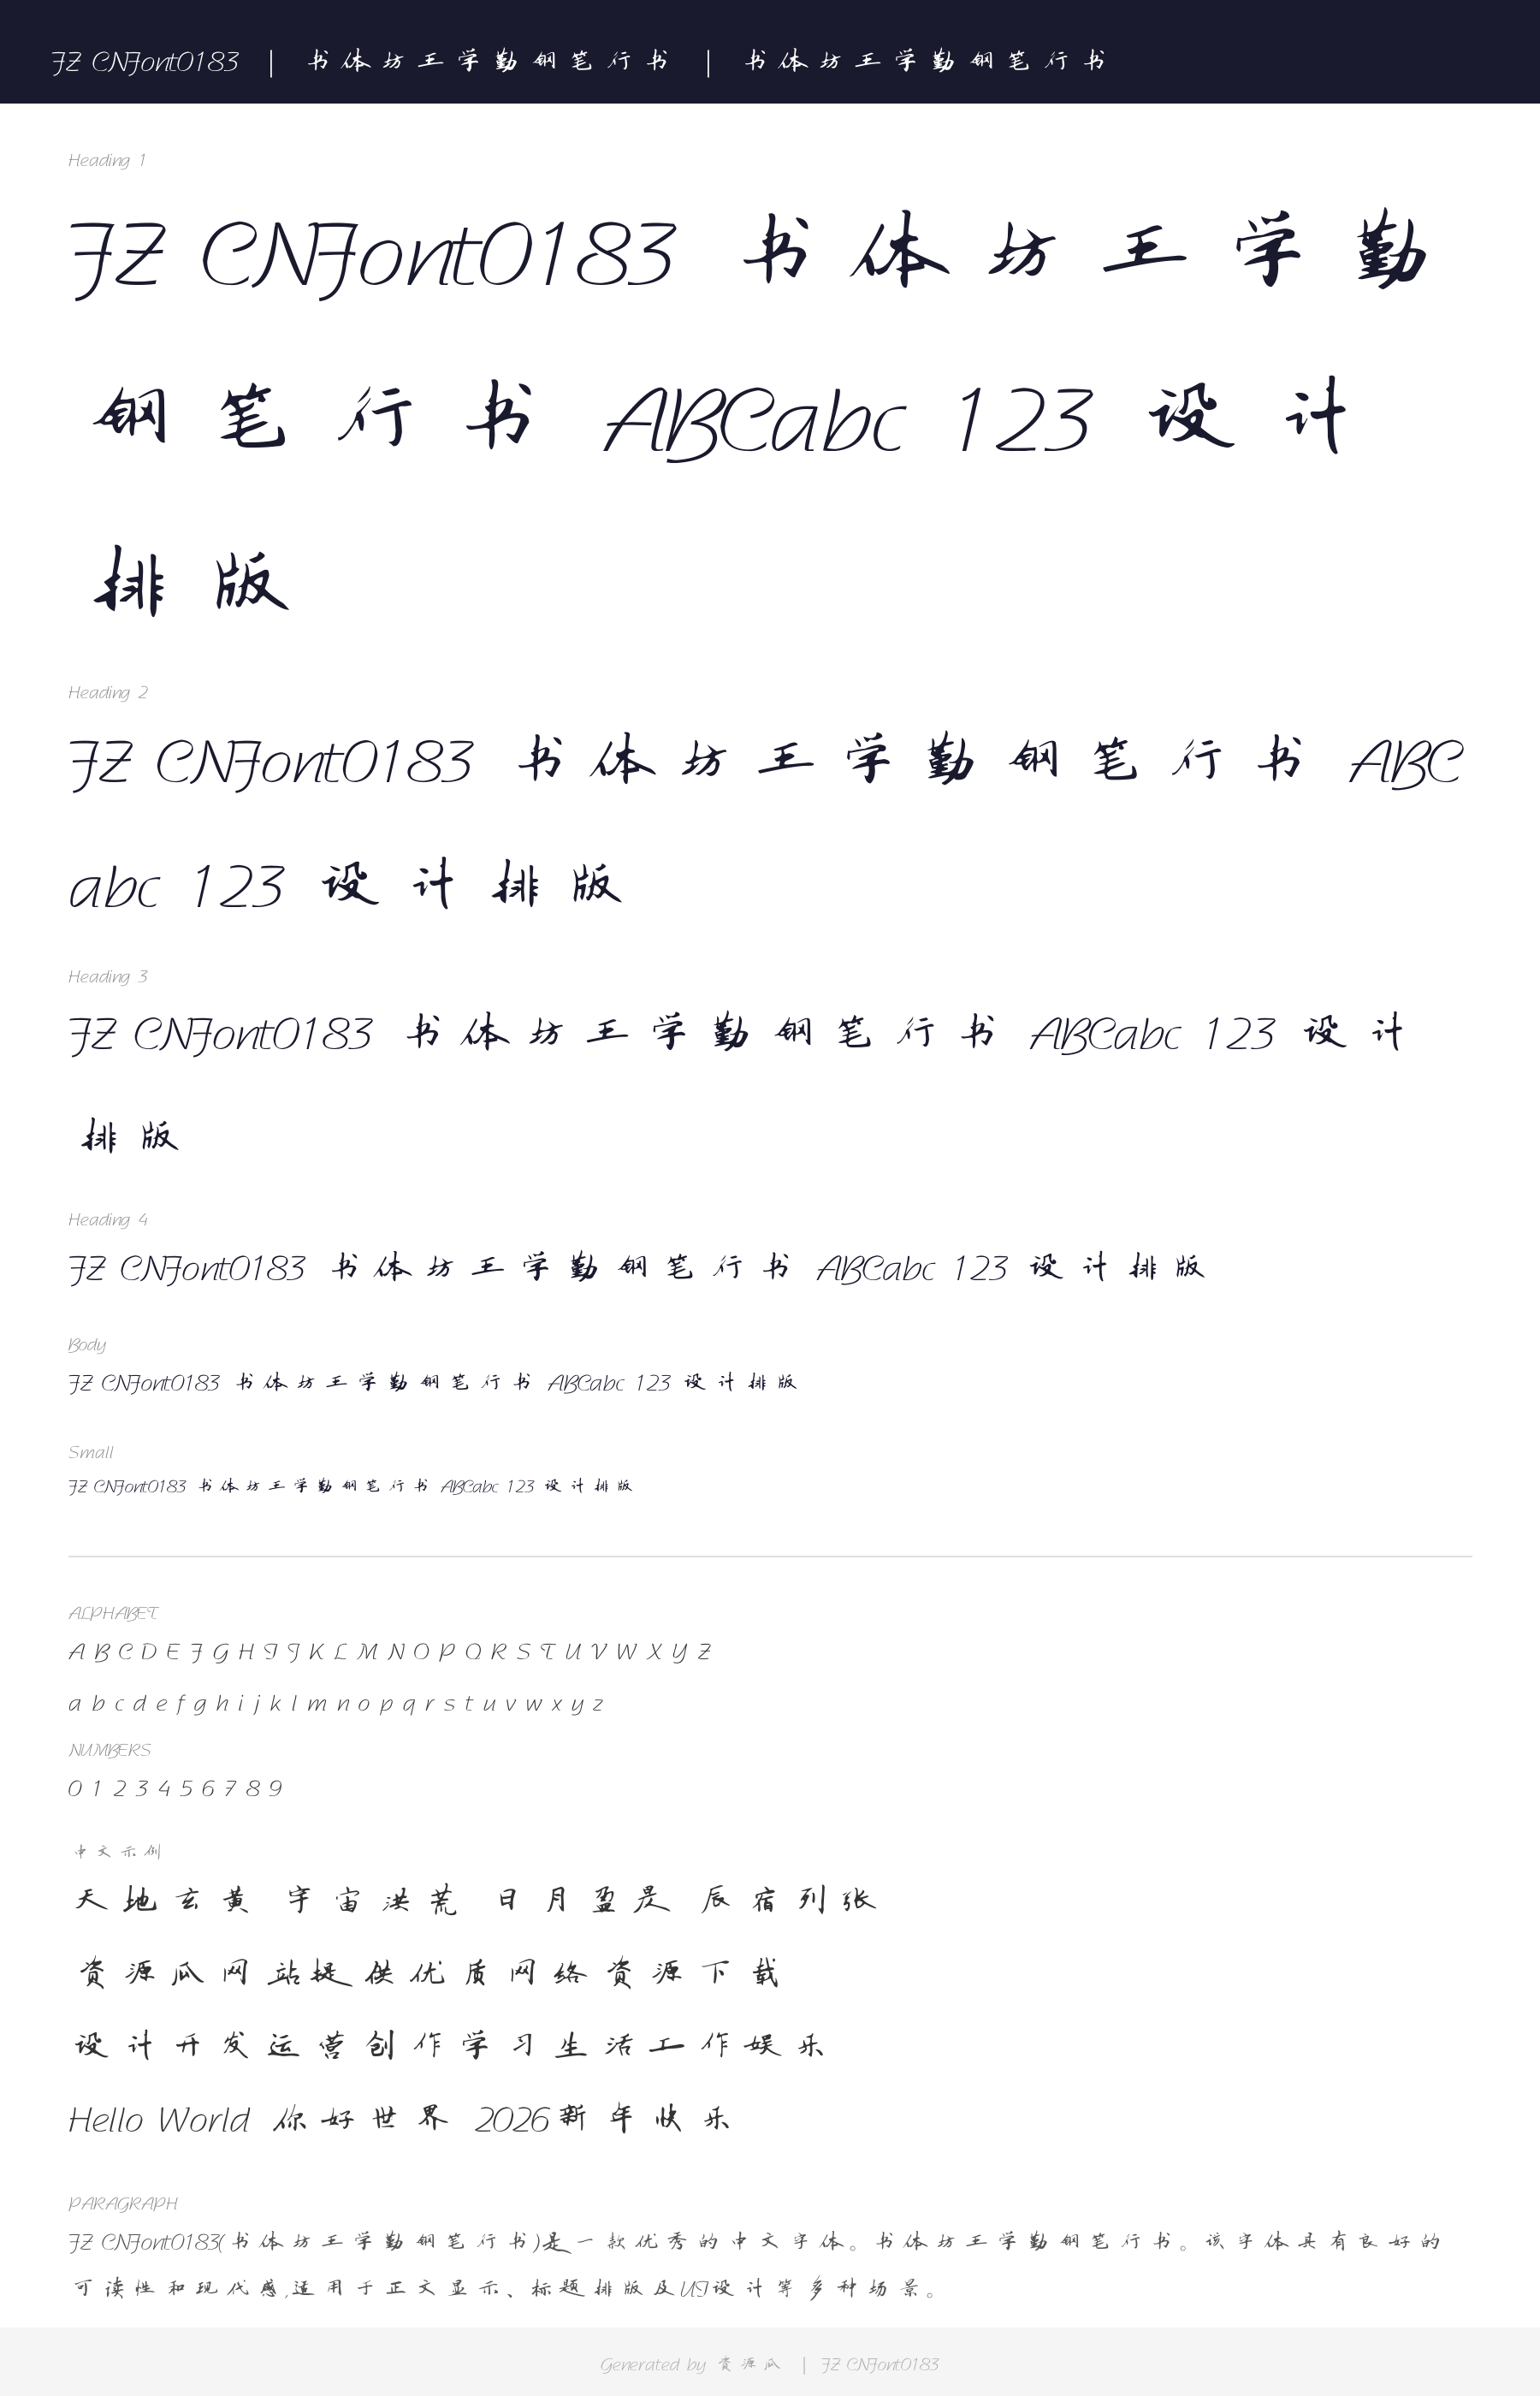 FZ CNFont0183 | 书体坊王学勤钢笔行书 | 书体坊王学勤钢笔行书
Heading 1
FZ CNFont0183 书体坊王学勤
钢笔行书 ABCabc 123 设计
排版
Heading 2
FZ CNFont0183 书体坊王学勤钢笔行书 ABC
abc 123 设计排版
Heading 3
FZ CNFont0183 书体坊王学勤钢笔行书 ABCabc 123 设计
排版
Heading 4
FZ CNFont0183 书体坊王学勤钢笔行书 ABCabc 123 设计排版
Body
FZ CNFont0183 书体坊王学勤钢笔行书 ABCabc 123 设计排版
Small
FZ CNFont0183 书体坊王学勤钢笔行书 ABCabc 123 设计排版
ALPHABET
A B C D E F G H I J K L M N O P Q R S T U V W X Y Z
a b c d e f g h i j k l m n o p q r s t u v w x y z
NUMBERS
0 1 2 3 4 5 6 7 8 9
中文示例
天地玄黄 宇宙洪荒 日月盈昃 辰宿列张
资源瓜网站提供优质网络资源下载
设计开发运营创作学习生活工作娱乐
Hello World 你好世界 2026新年快乐
PARAGRAPH
FZ CNFont0183(书体坊王学勤钢笔行书)是一款优秀的中文字体。书体坊王学勤钢笔行书。该字体具有良好的
可读性和现代感,适用于正文显示、标题排版及UI设计等多种场景。
Generated by 资源瓜 | FZ CNFont0183